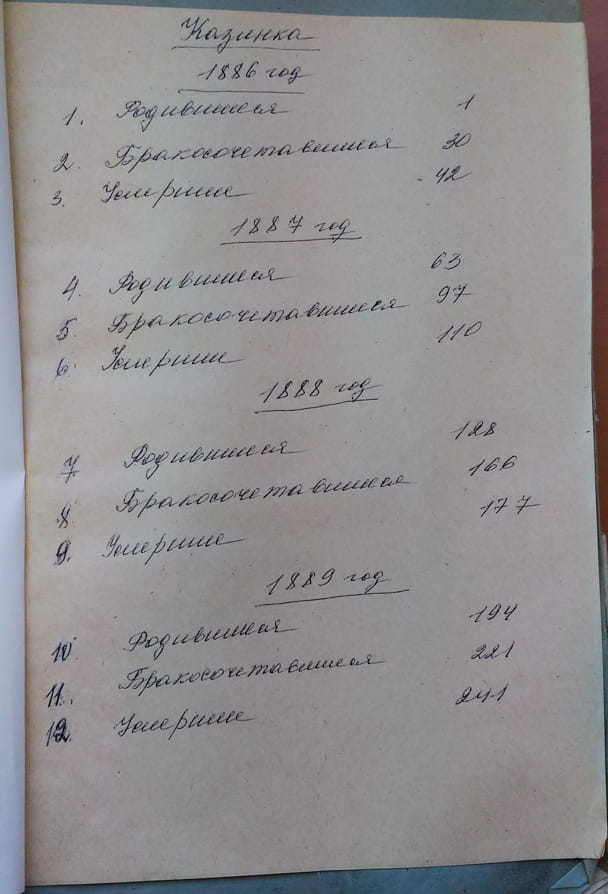 Казинка
1886 год
1. Родившиеся 1
2. Бракосочетавшиеся 30
3. Умершие 42
1887 год
4. Родившиеся 63
5. Бракосочетавшиеся 97
6. Умершие 110
1888 год
7 Родившиеся 128
8 Бракосочетавшиеся 166
9. Умершие 177
1889 год
10. Родившиеся 194
11. Бракосочетавшиеся 221
12. Умершие 241